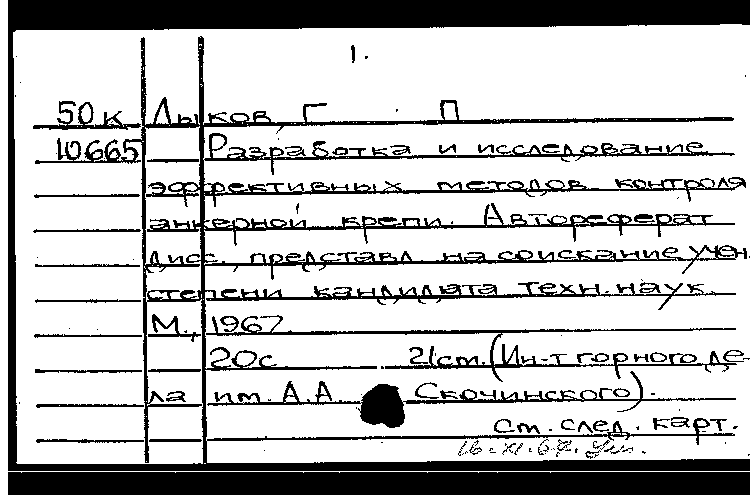 1.
50к Лыков, Г П
10665 Разработка и исследование
эффективных методов контроля
анкерной крепи. Автореферат
дисс., представл. на соискание учен.
степени кандидата техн. наук.
М., 1967.
20с. 21см. (Ин-т горного де-
ла им. А.А. Скочинского).
См. след. карт.
16.XI.67.